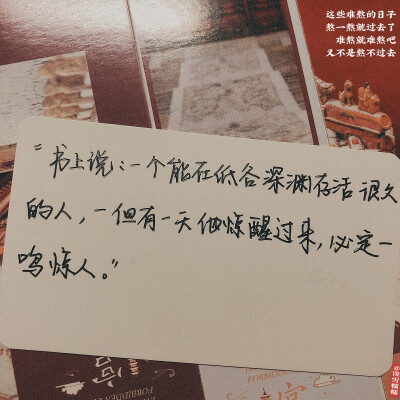 这些难熬的日子
熬一熬就过去了
难熬就难熬吧
又不是熬不过去
"书上说:一个能在低谷深渊存活很久
的人,一但有一天他惊醒过来,必定一
鸣惊人。"
FORBIDDEN
@浪雪糯糯